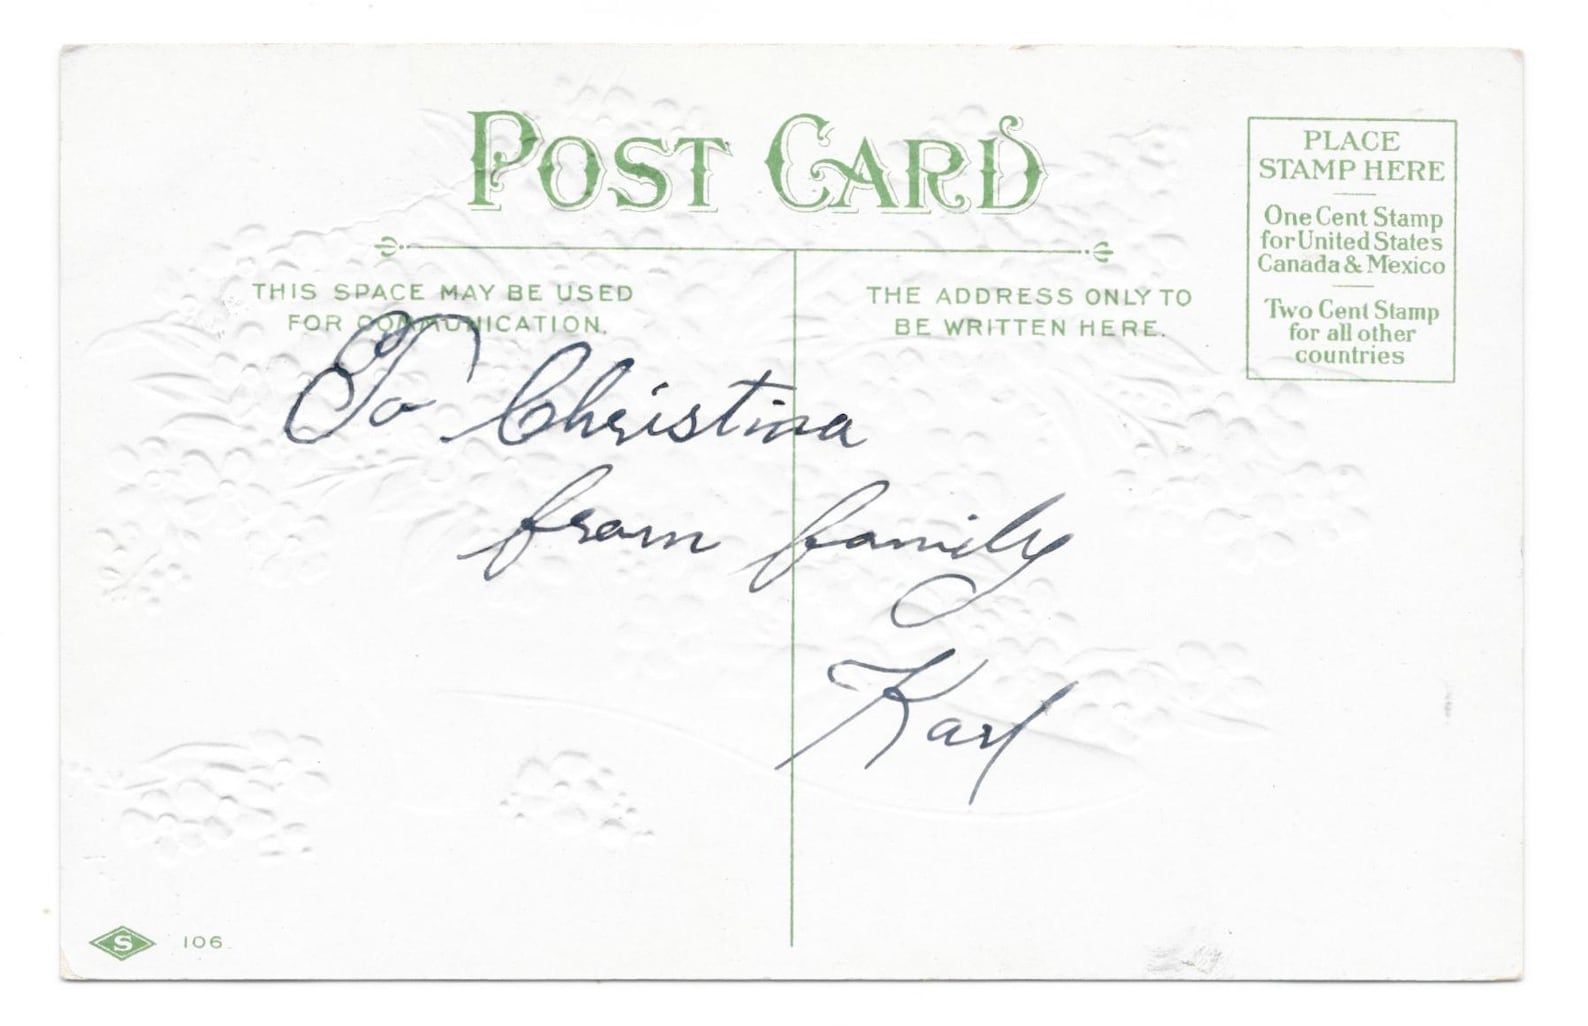 POST CARD
PLACE
STAMP HERE
One Cent Stamp
for United States
Canada & Mexico
Two Cent Stamp
for all other
countries
THIS SPACE MAY BE USED
FOR COMMUNICATION.
THE ADDRESS ONLY TO
BE WRITTEN HERE.
To Christina
from family
Karl
S 106